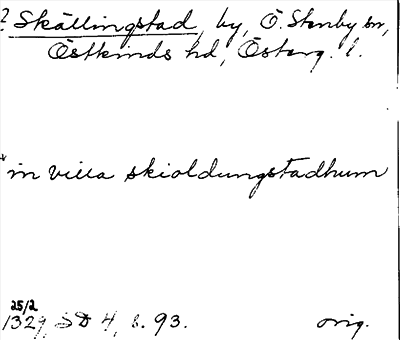 ? Skällingstad, by, Ö. Stenby sn,
Östkinds hd, Österg. l.
in villa skioldungstadhum
25/2
1329, SD 4, s. 93.
orig.